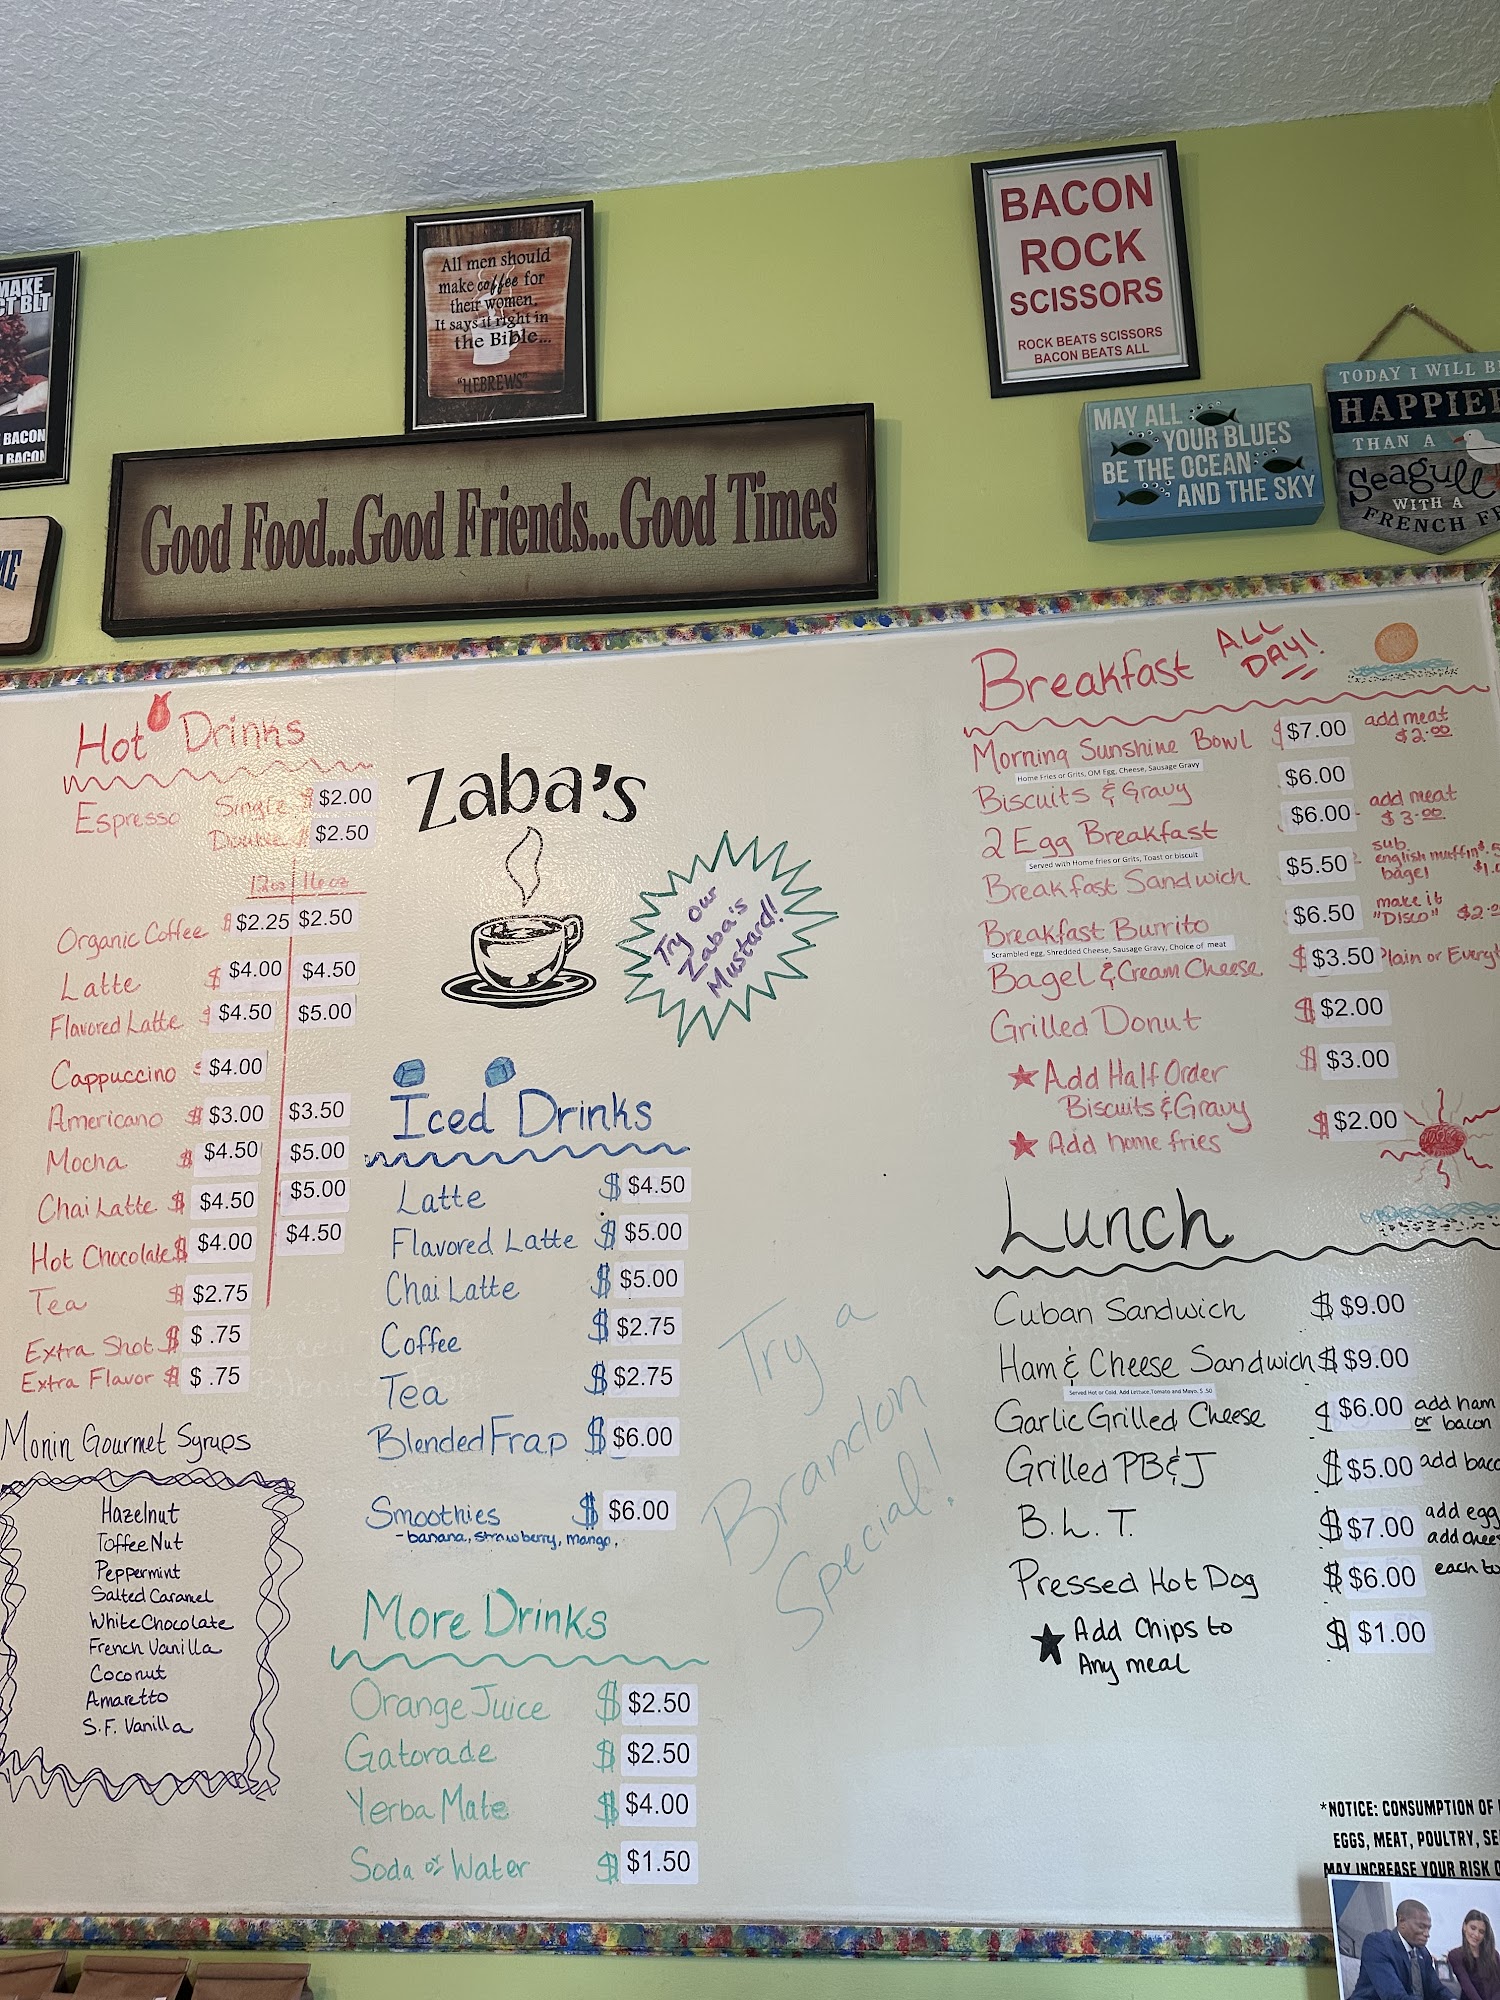 MAKE
CT BLT
BACON
BACON
ME
All men should
make coffee for
their women.
It says it right in
the Bible...
"HEBREWS"
Good Food...Good Friends...Good Times
BACON
ROCK
SCISSORS
ROCK BEATS SCISSORS
BACON BEATS ALL
MAY ALL
YOUR BLUES
BE THE OCEAN
AND THE SKY
TODAY I WILL BE
HAPPIER
THAN A
Seagull
WITH A
FRENCH
Hot Drinks
Espresso Single $ $2.00
Double $ $2.50
12oz 16oz
Organic Coffee $ $2.25 $2.50
Latte $ $4.00 $4.50
Flavored Latte $ $4.50 $5.00
Cappuccino $ $4.00
Americano $ $3.00 $3.50
Mocha $ $4.50 $5.00
Chai Latte $ $4.50 $5.00
Hot Chocolate $ $4.00 $4.50
Tea $ $2.75
Extra Shot $ $ .75
Extra Flavor $ $ .75
Monin Gourmet Syrups
Hazelnut
Toffee Nut
Peppermint
Salted Caramel
White Chocolate
French Vanilla
Coconut
Amaretto
S.F. Vanilla
Zaba's
Try our
Zaba's
Mustard!
Iced Drinks
Latte $ $4.50
Flavored Latte $ $5.00
Chai Latte $ $5.00
Coffee $ $2.75
Tea $ $2.75
Blended Frap $ $6.00
Smoothies $ $6.00
- banana, strawberry, mango,
More Drinks
Orange Juice $ $2.50
Gatorade $ $2.50
Yerba Mate $ $4.00
Soda or Water $ $1.50
Try a
Brandon
Special!
Breakfast ALL DAY!
Morning Sunshine Bowl $ $7.00 add meat $2.00
Home Fries or Grits, OM Egg, Cheese, Sausage Gravy
Biscuits & Gravy $6.00
2 Egg Breakfast $6.00 - add meat $3.00
Served with Home fries or Grits, Toast or biscuit
Breakfast Sandwich $5.50 - sub
english muffin $.5
bagel $1.0
Breakfast Burrito $6.50 make it "DISCO" $2.0
Scrambled egg, Shredded Cheese, Sausage Gravy, Choice of meat
Bagel & Cream Cheese $ $3.50 Plain or Everyt
Grilled Donut $ $2.00
★ Add Half Order $ $3.00
Biscuits & Gravy
★ Add home fries $ $2.00
Lunch
Cuban Sandwich $ $9.00
Ham & Cheese Sandwich $ $9.00
Served Hot or Cold, Add Lettuce, Tomato and Mayo, $ .50
Garlic Grilled Cheese $ $6.00 add ham
or bacon
Grilled PB&J $ $5.00 add baco
B.L.T. $ $7.00 add egg
add chees
Pressed Hot Dog $ $6.00 each to
★ Add Chips to $ $1.00
Any meal
*NOTICE: CONSUMPTION OF
EGGS, MEAT, POULTRY, SE
MAY INCREASE YOUR RISK O